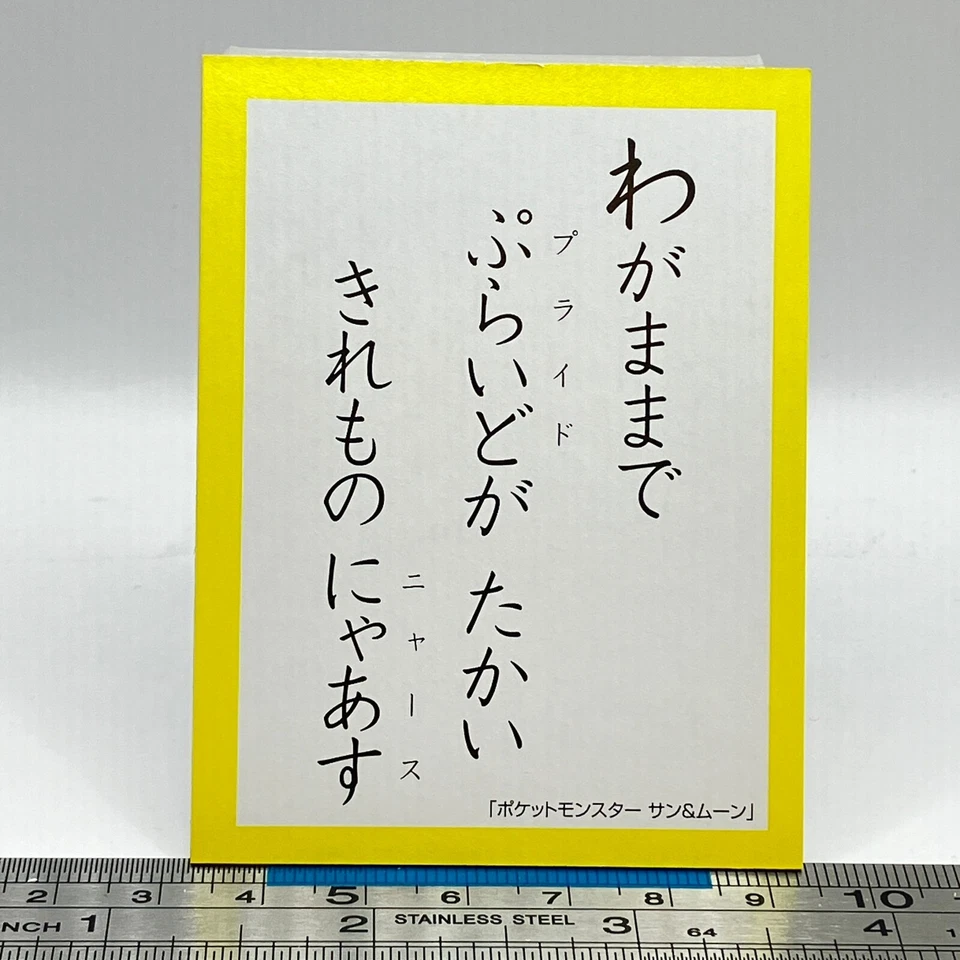 わがままで
ぷらいどが たかい
プライド
きれもの にゃあす
ニャース
「ポケットモンスター サン&ムーン」
2 3 4 5 6 7 8 9 10
NCH 1 2 STAINLESS STEEL 3 64 4 1